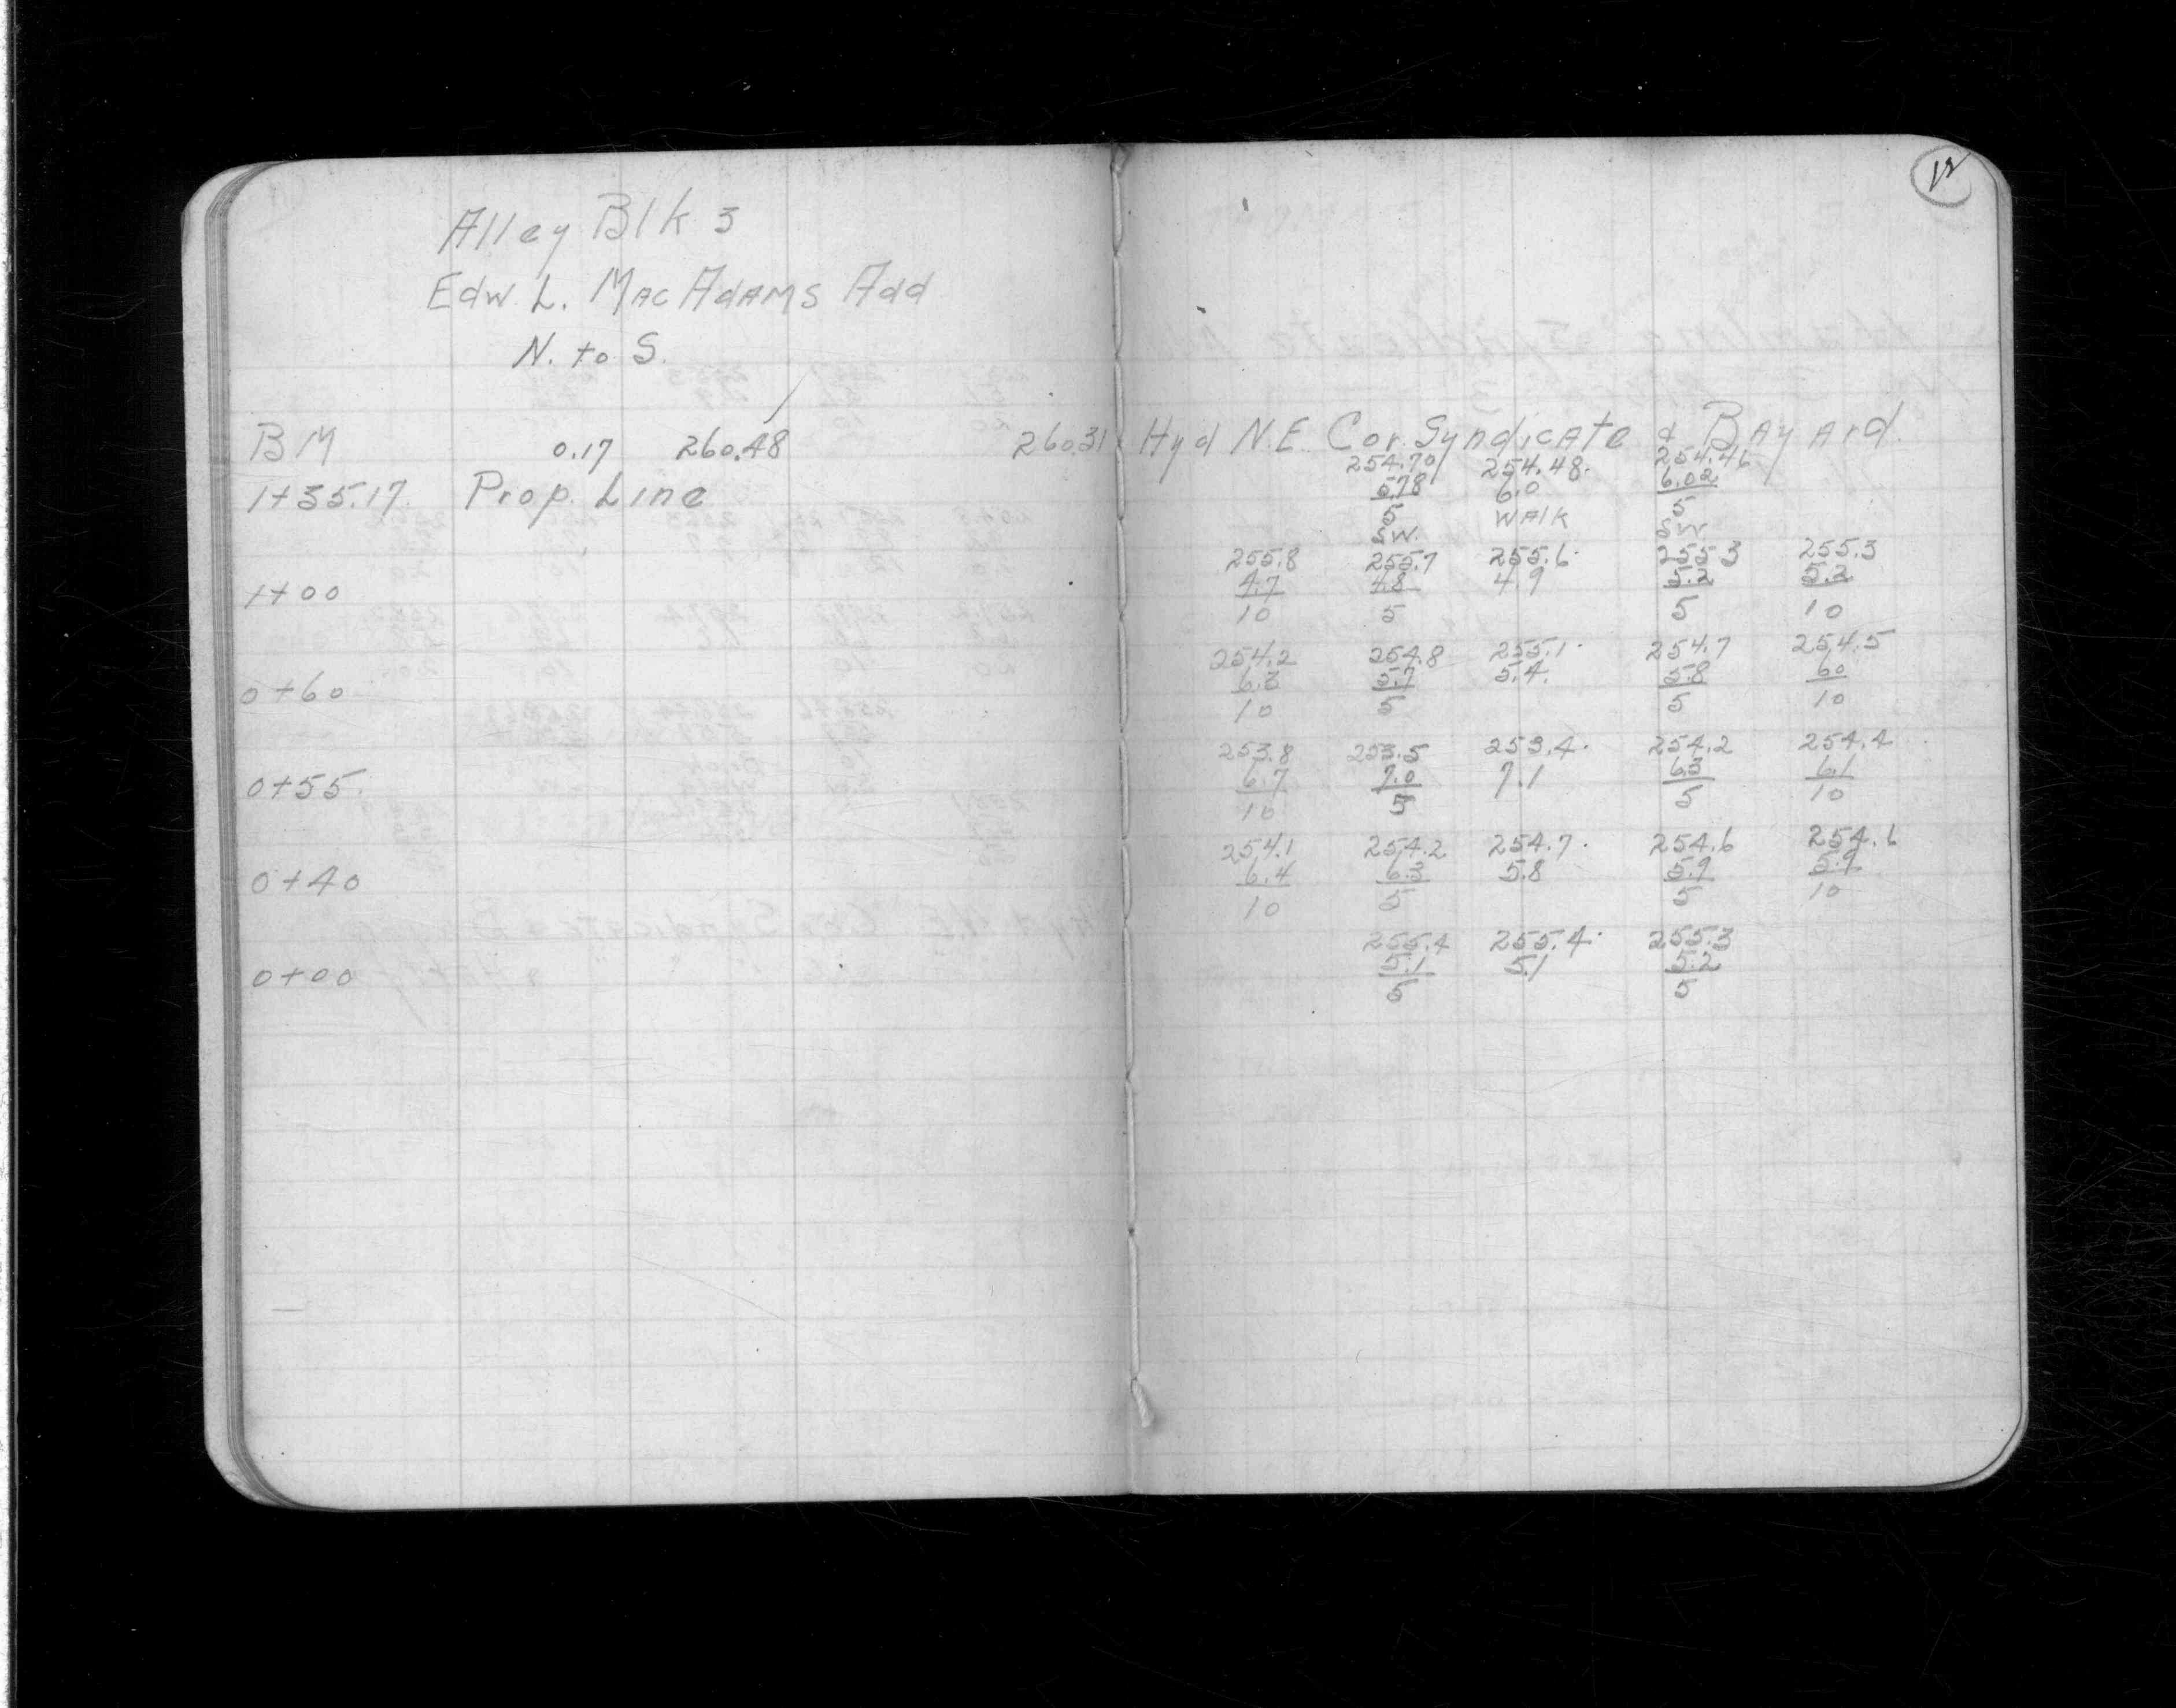 12
Alley Blk 3
Edw. L. MacAdams Add
N. to S.
BM 0.17 260.48 260.31 Hyd N.E. Cor. Syndicate & Bayard.
254.70 254.48 254.46
1+35.17 Prop. Line 5.78 6.0 6.02
5 Walk 5
SW. SW
255.8 255.7 255.6 255.3 255.3
1+00 4.7 4.8 4.9 5.2 5.2
10 5 5 10
254.2 254.8 255.1 254.7 254.5
0+60 6.3 5.7 5.4 5.8 6.0
10 5 5 10
253.8 253.5 253.4 254.2 254.4
0+55 6.7 7.0 7.1 6.3 6.1
10 5 5 10
254.1 254.2 254.7 254.6 254.6
0+40 6.4 6.3 5.8 5.9 5.9
10 5 5 10
255.4 255.4 255.3
0+00 5.1 5.1 5.2
5 5